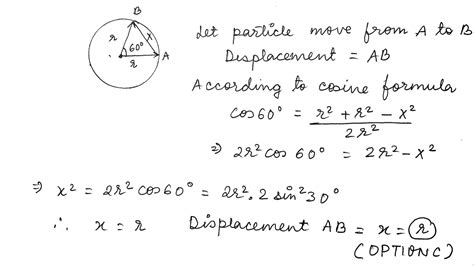 B
r
x
60°
r
A
Let particle move from A to B
Displacement = AB
According to cosine formula
cos60° = r² + r² - x² / 2r²
⇒ 2r² cos 60° = 2r² - x²
⇒ x² = 2r² cos60° = 2r². 2 sin² 30°
∴ x = r Displacement AB = x = r
(OPTION C)